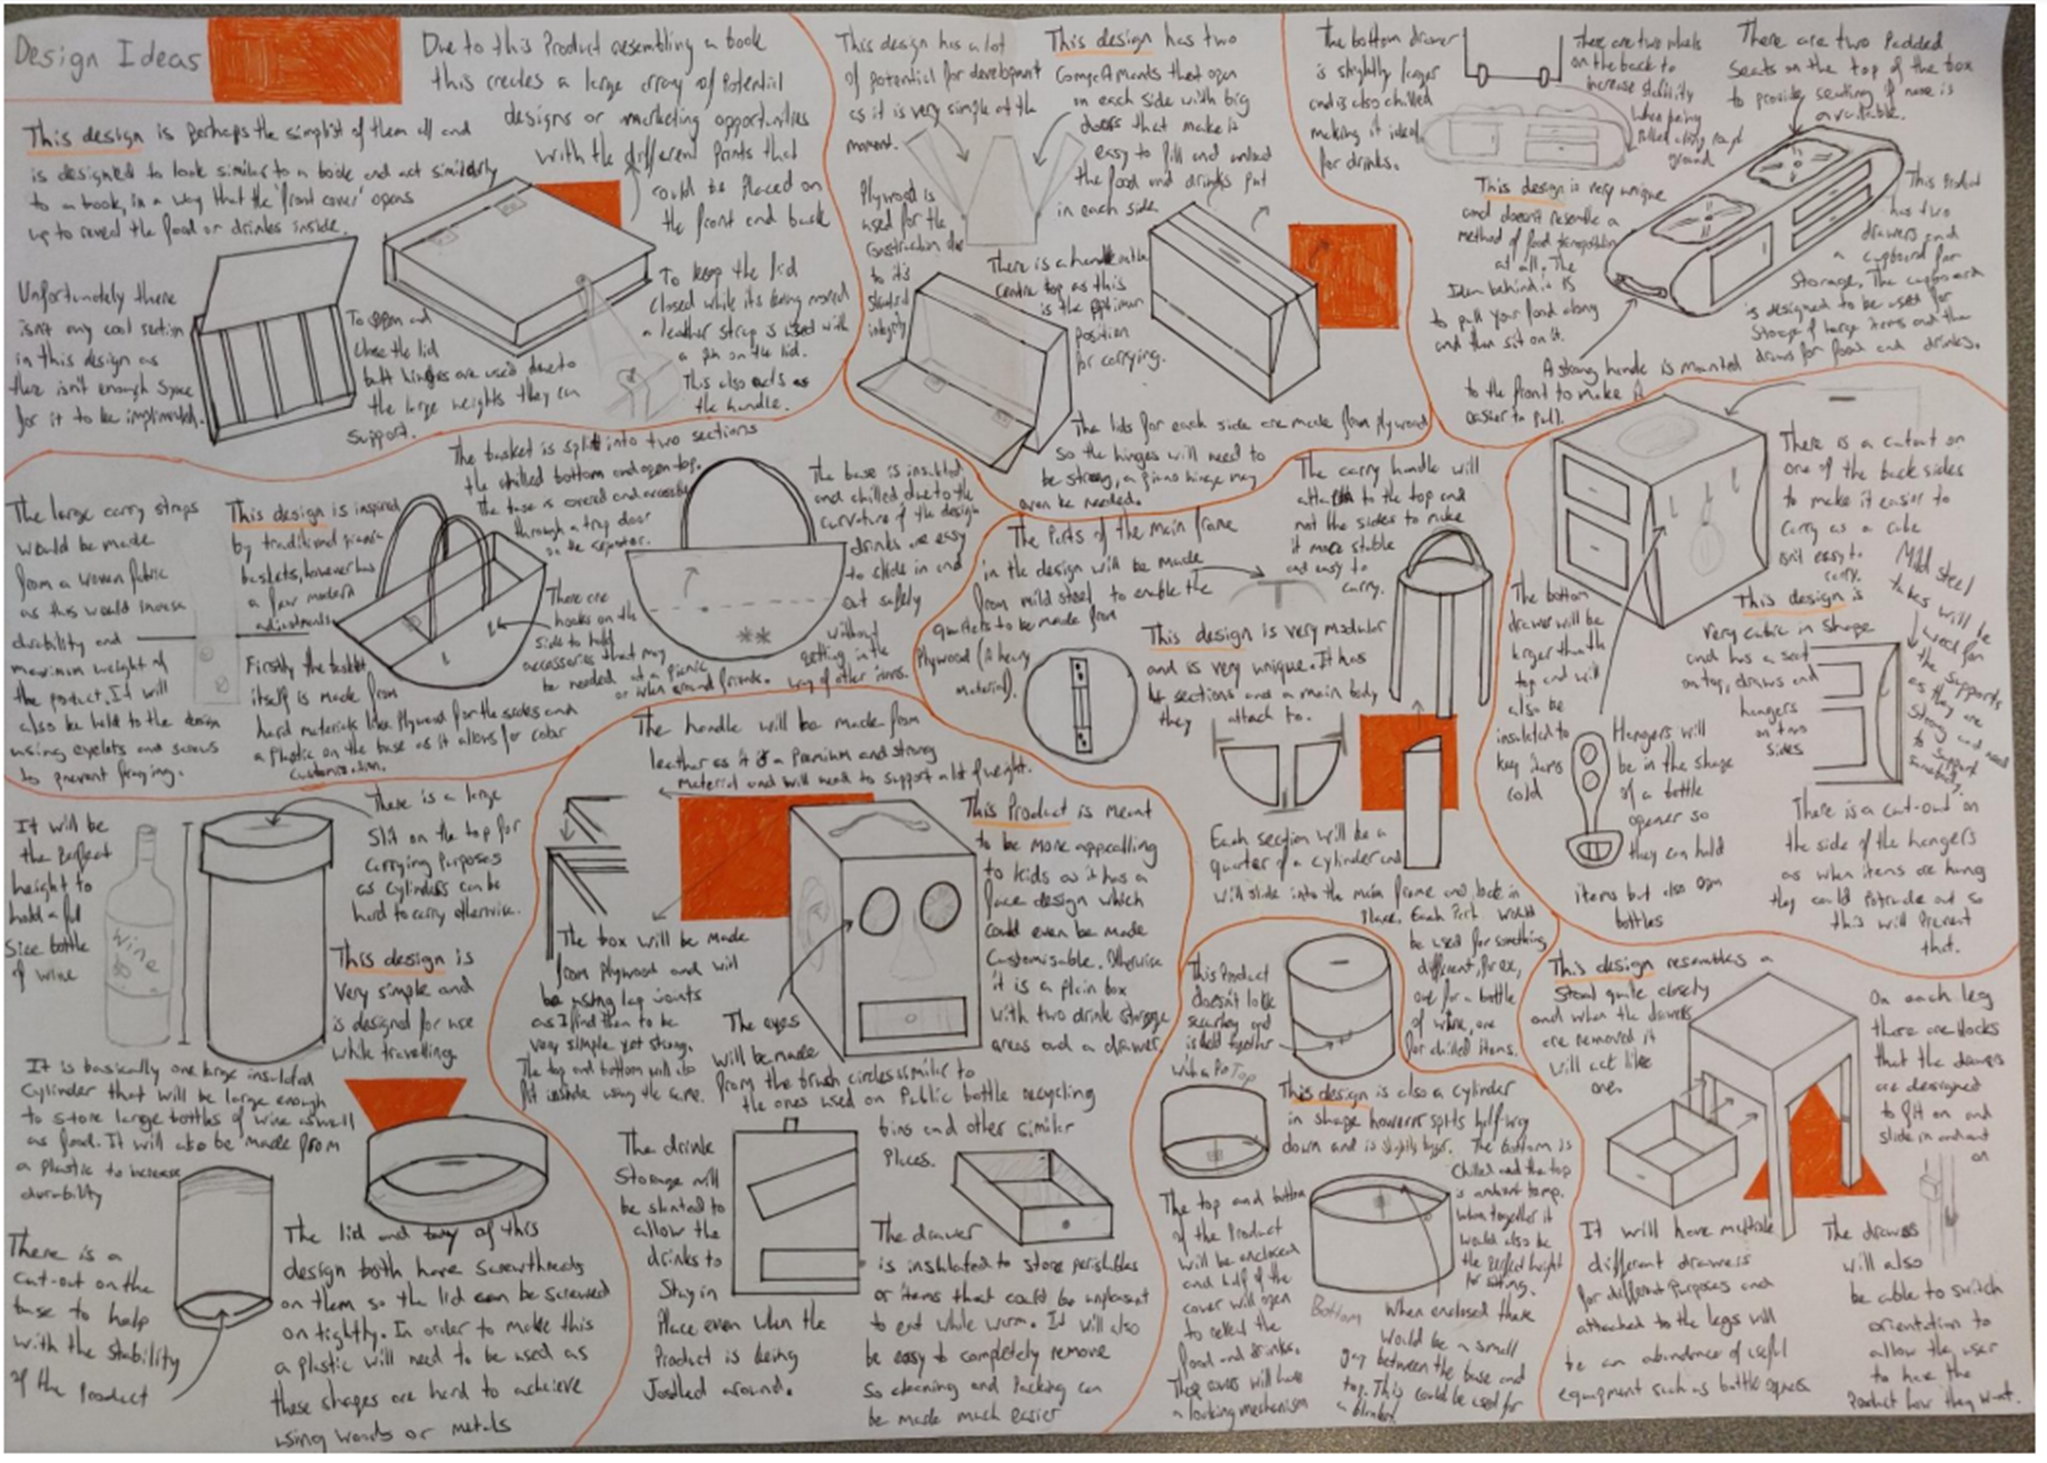 Design Ideas
This design is Perhaps the simplist of them all and
is designed to look similar to a book and act similarly
to a book, in a way that the 'front cover' opens
up to reveal the food or drinks inside.
Unfortunately there
isn't any cool section
in this design as
there isn't enough space
for it to be implimented.
Due to this Product resembling a book
this creates a large array of Potential
designs or marketing opportunities
with the different Prints that
could be placed on
the front and back
To open and
close the lid
butt hinges are used due to
the large weights they can
support.
To keep the lid
closed while its being moved
a leather strap is used with
a pin on the lid.
This also acts as
the handle.
This design has a lot
of potential for development
as it is very simple at the
moment.
Plywood is
used for the
construction due
to it's
integrity
This design has two
compartments that open
on each side with big
doors that make it
easy to fill and unload
the food and drinks put
in each side.
There is a handle on the
centre top as this
is the optimum
position
for carrying.
The lids for each side are made from plywood
so the hinges will need to
be strong, a piano hinge may
even be needed.
The bottom drawer
is slightly larger
and is also chilled
making it ideal
for drinks.
There are two wheels
on the back to
increase stability
when being
pulled along rough
ground
There are two Padded
seats on the top of the box
to provide seating if none is
available.
This design is very unique
and doesn't resemble a
method of food transportation
at all. The
Idea behind it is
to pull your food along
and then sit on it.
This product
has two
drawers and
a cupboard for
storage. The cupboard
is designed to be used for
storage of large items and the
draws for food and drinks.
A strong handle is mounted
to the front to make it
easier to pull.
The large carry straps
would be made
from a woven fabric
as this would increase
durability and
maximum weight of
the product. It will
also be held to the design
using eyelets and screws
to prevent fraying.
This design is inspired
by traditional picnic
baskets, however has
a few modern
adjustments.
Firstly the basket
itself is made from
hard materials like plywood for the sides and
a plastic on the base as it allows for color
customisation.
The basket is split into two sections
the chilled bottom and open top.
The base is covered and accessible
through a trap door
on the seperator.
There are
hooks on the
side to hold
accessories that may
be needed at a picnic
or when around friends.
The base is insulated
and chilled due to the
curvature of the design
drinks are easy
to slide in and
out safely
without
getting in the
way of other items.
**
The Parts of the main frame
in the design will be made
from mild steel to enable the
quarters to be made from
Plywood (A heavy
material).
The carry handle will
attach to the top and
not the sides to make
it more stable
and easy to
carry.
This design is very modular
and is very unique. It has
4 sections and a main body
they attach to.
Each section will be a
quarter of a cylinder and
will slide into the main frame and lock in
place. Each Part would
be used for something
different, for ex,
one for a bottle
of wine, one
for chilled items.
There is a cutout on
one of the back sides
to make it easier to
carry as a cube
isn't easy to
carry.
The bottom
drawer will be
larger than the
top and will
also be
insulated to
keep items
cold
This design is
very cubic in shape
and has a seat
on top, draws and
hangers
on two
sides
Mild steel
tubes will be
used for
the supports
as they are
strong and need
to support
somebody.
Hangers will
be in the shape
of a bottle
opener so
they can hold
items but also open
bottles
There is a cut-out on
the side of the hangers
as when items are hung
they could protrude out so
this will prevent
that.
It will be
the perfect
height to
hold a full
size bottle
of wine
Wine
There is a large
slit on the top for
carrying purposes
as cylinders can be
hard to carry otherwise.
This design is
very simple and
is designed for use
while travelling.
It is basically one large insulated
cylinder that will be large enough
to store large bottles of wine aswell
as food. It will also be made from
a plastic to increase
durability
There is a
cut-out on the
base to help
with the stability
of the product
The lid and body of this
design both have screwthreads
on them so the lid can be screwed
on tightly. In order to make this
a plastic will need to be used as
these shapes are hard to achieve
using woods or metals
The handle will be made from
leather as it is a Premium and strong
material and will need to support a lot of weight.
The box will be made
from plywood and will
be using lap joints
as I find them to be
very simple yet strong.
The top and bottom will also
fit inside using the same.
This Product is meant
to be more appealling
to kids as it has a
face design which
could even be made
customisable. Otherwise
it is a plain box
with two drink storage
areas and a drawer.
The eyes
will be made
from the brush circles similar to
the ones used on Public bottle recycling
bins and other similar
places.
The drink
storage will
be slanted to
allow the
drinks to
stay in
place even when the
Product is being
Jostled around.
The drawer
is insulated to store perishables
or items that could be unpleasant
to eat while warm. It will also
be easy to completely remove
so cleaning and Packing can
be made much easier
This Product
doesn't look
and
is held together
with a Pin
Top
This design is also a cylinder
in shape however splits half-way
down and is slightly bigger. The bottom is
chilled and the top
is ambient temp.
When together it
would also be
the perfect height
for sitting.
The top and bottom
of the Product
will be enclosed
and half of the
cover will open
to reveal the
food and drinks.
These covers will have
a locking mechanism
Bottom
When enclosed there
would be a small
gap between the base and
top. This could be used for
a blanket
This design resembles a
stool quite closely
and when the drawers
are removed it
will act like
one.
On each leg
there are blocks
that the drawers
are designed
to fit on and
slide in and out
on
It will have multiple
different drawers
for different Purposes and
attached to the legs will
be an abundance of useful
equipment such as bottle openers
The drawers
will also
be able to switch
orientation to
allow the user
to have the
Product how they want.